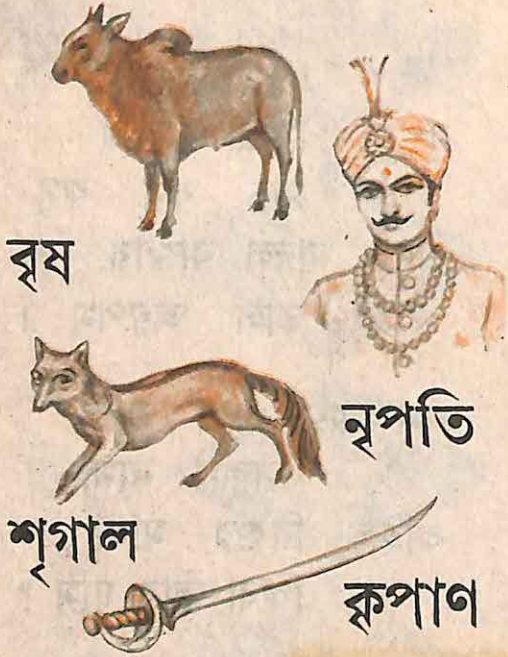 বৃষ
নৃপতি
শৃগাল
কৃপাণ